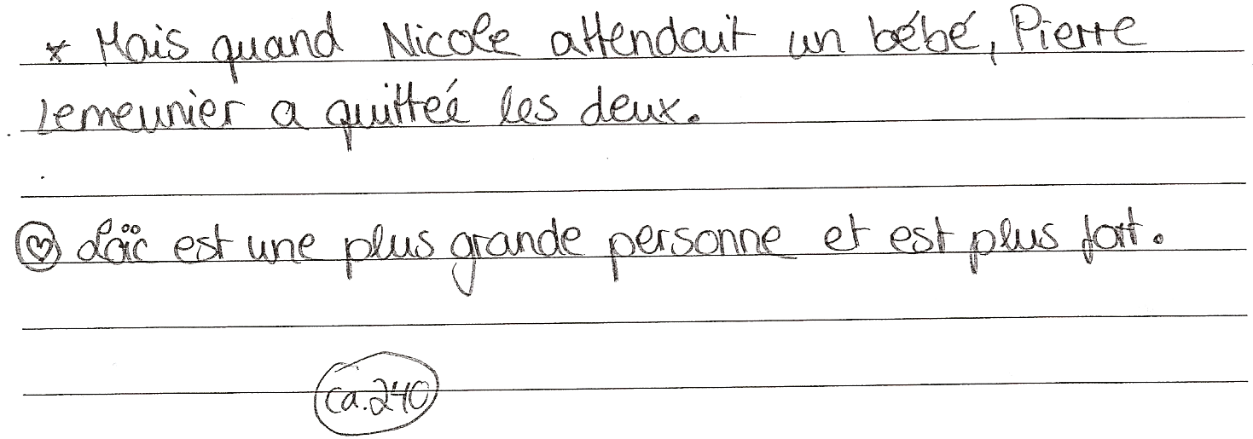 * Mais quand Nicole attendait un bébé, Pierre
Lemeunier a quitteé les deux.
est une plus grande personne et est plus fort.
ca. 240